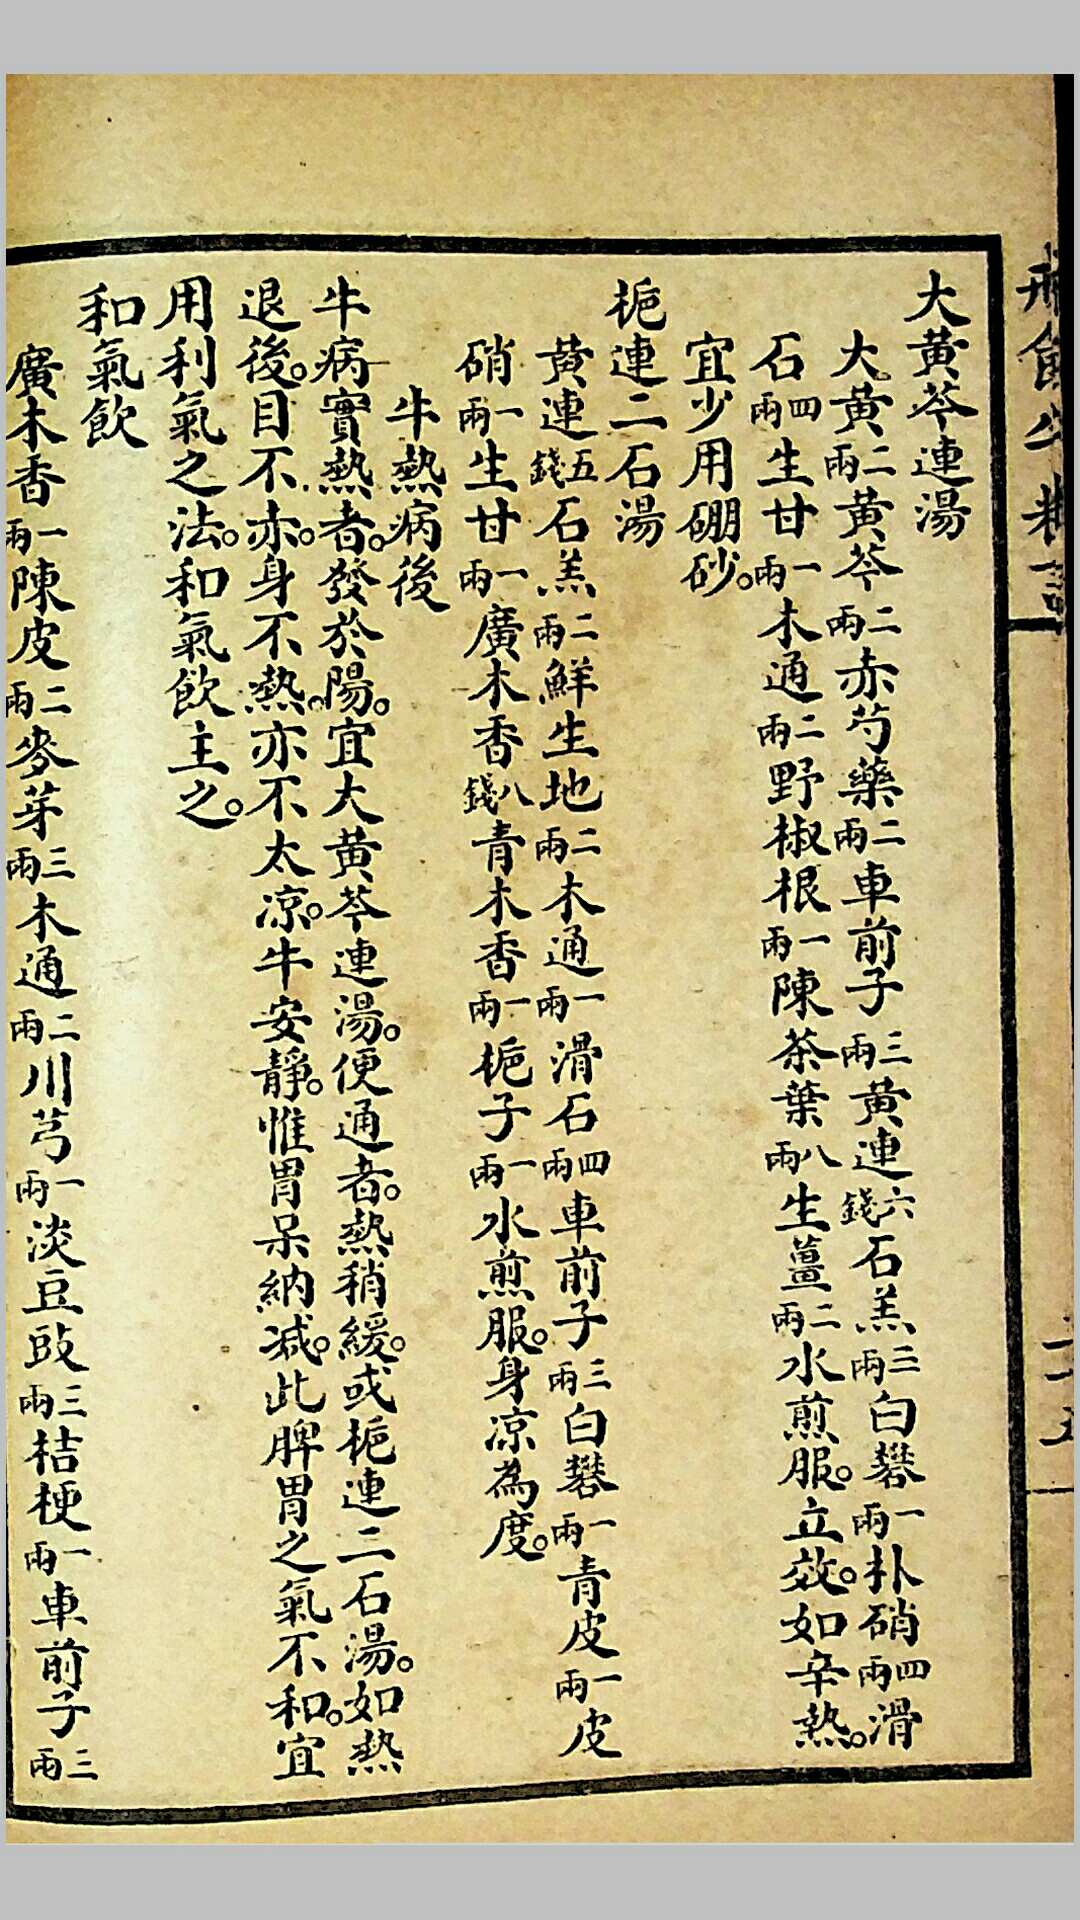 大黃芩連湯
大黃二兩黃芩二兩赤芍藥二兩車前子三兩黃連六錢石羔三兩白礬一兩朴硝四兩滑
石四兩生甘一兩木通二兩野椒根一兩陳茶葉八兩生薑二兩水煎服。立效。如辛熱。
宜少用硼砂。
梔連二石湯
黃連五錢石羔二兩鮮生地二兩木通一兩滑石四兩車前子三兩白礬一兩青皮一兩皮
硝一兩生甘一兩廣木香八錢青木香一兩梔子一兩水煎服。身凉為度。
牛熱病後
牛病實熱者。發於陽。宜大黃芩連湯。便通者。熱稍緩。或梔連二石湯。如熱
退後。目不赤。身不熱。亦不太凉。牛安靜。惟胃呆納减。此脾胃之氣不和。宜
用利氣之法。和氣飲主之。
和氣飲
廣木香一兩陳皮二兩麥芽三兩木通二兩川芎一兩淡豆豉三兩桔梗一兩車前子三兩